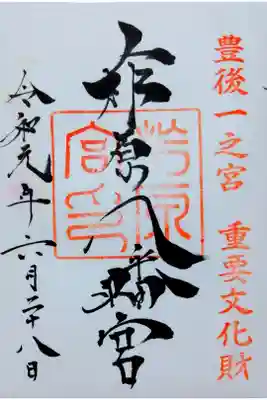 豊後一之宮　重要文化財
柞原八幡宮
令和元年六月二十八日